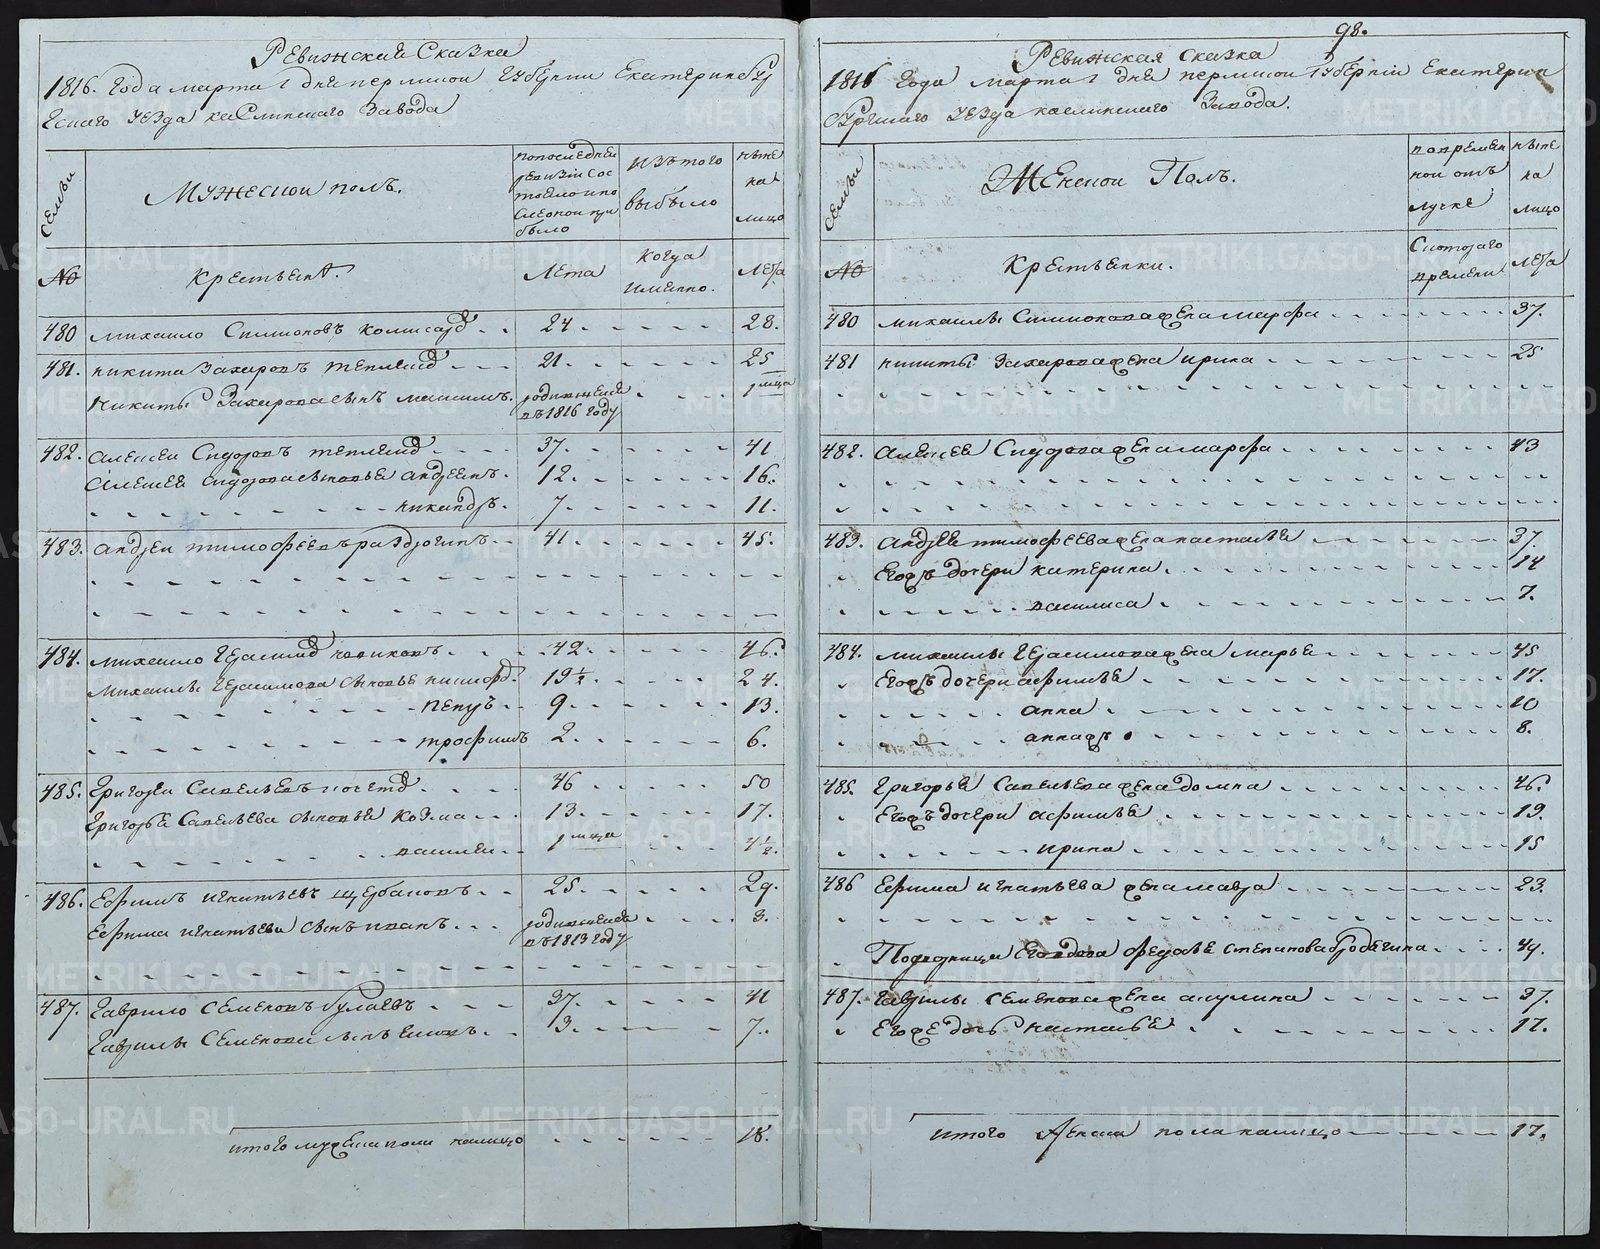 Ревижская Сказка
1816. Года марта 1 дня пермской Губернии Екатеринбур
Гскаго уезда каслинскаго Завода
Семьи
Мужескои полъ.
попоследней ревизии состояло и после оной прибыло
изъ того выбыло
ныне на лицо
№
Крестьяне.
Лета
Когда именно.
Лета
480 михаило Симионовъ комисаръ 24 28.
481. никита Захаровъ 21. 25
Никиты Захарова сынъ родившейся въ 1816 году 1 мца
482. алексеи Сидоровъ 37. 41
алексея Сидорова сыновья андреянъ. 12. 16.
никандръ. 7. 11.
483. андреи тимофеевъ 41. 45.
484. михаило Герасимовъ новиковъ 42. 46.
михаилы Герасимова сыновья никифоръ 19½ 24.
9. 13.
трофимъ 2. 6.
485. Григореи Савельевъ 46 50
Григорья Савельева сыновья козма 13. 17.
василеи 1 мца 4½.
486. Ефимъ игнатьевъ щербаковъ 25. 29.
Ефима игнатьева сынъ иванъ родившейся въ 1813 году 3.
487. гаврило семеновъ булаевъ 37. 41
гаврилы семенова сынъ 3. 7.
итого мужеска пола налицо 18.
98.
Ревижская Сказка
1816 года марта 1 дня пермской губернии Екатерин
бургскаго уезда каслинскаго Завода.
Семьи
Женской Полъ.
во временной отлучке
ныне на лицо
№
Крестьянки.
С котораго времени
лета
480 михаилы Симионова жена марфа 37.
481 никиты Захарова жена ирина 25
482. алексея Сидорова жена марфа 43
483. андрея тимофеева жена настасья 37.
Егожъ дочери катерина 14
василиса 7.
484. михаилы Герасимова жена марья 45
Егожъ дочери афимья 17.
анна 10
8.
485. Григорья Савельева жена домна 46.
Егожъ дочери афимья 19.
ирина 15
486 Ефима игнатьева жена мавра 23.
вдова степанова 49.
487. гаврилы семенова жена акулина 37.
Егоже дочь настасья 17.
итого женска пола налицо 17.
METRIKI.GASO-URAL.RU